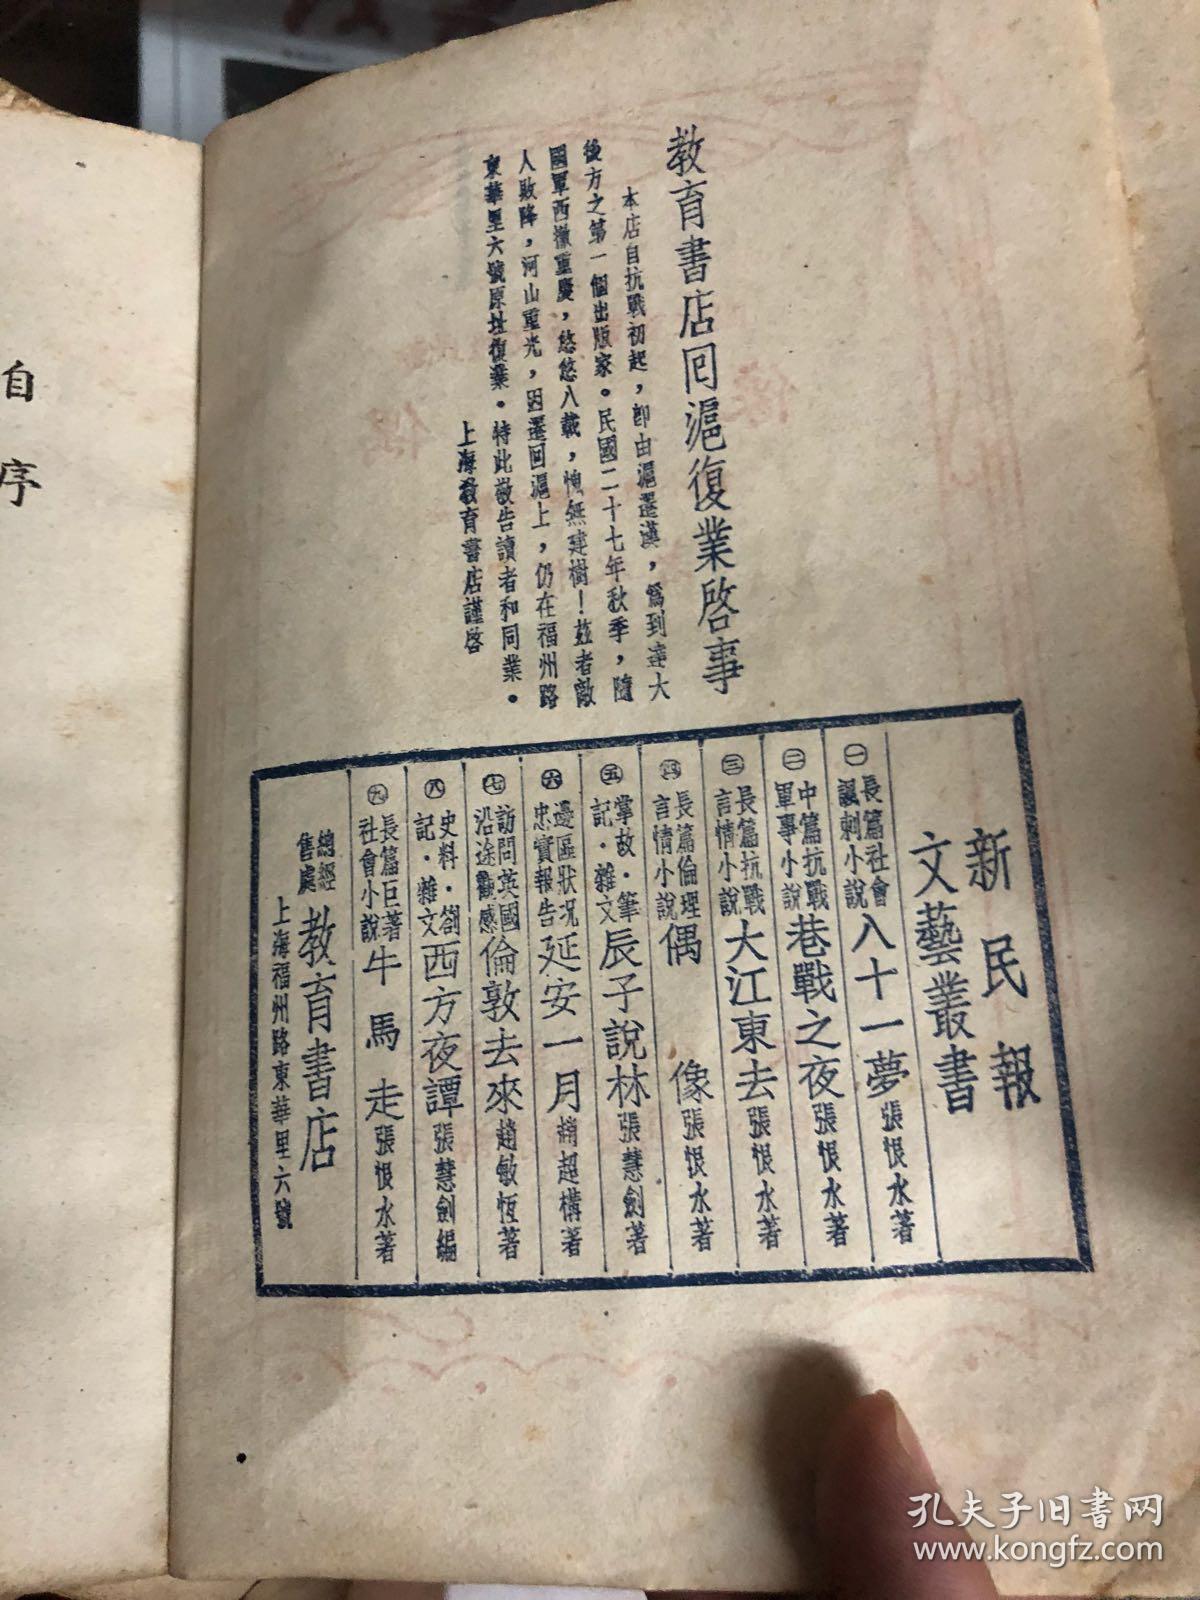 教育書店回滬復業啓事
本店自抗戰初起，卽由滬遷漢，爲到達大
後方之第一個出版家。民國二十七年秋季，隨
國軍西撤重慶，悠悠八載，愧無建樹！茲者敵
人敗降，河山重光，因遷回滬上，仍在福州路
東華里六號原址復業。特此敬告讀者和同業。
上海教育書店謹啓
新民報
文藝叢書
㊀長篇社會諷刺小說 八十一夢 張恨水著
㊁中篇抗戰軍事小說 巷戰之夜 張恨水著
㊂長篇抗戰言情小說 大江東去 張恨水著
㊃長篇倫理言情小說 偶像 張恨水著
㊄掌故·筆記·雜文 辰子說林 張慧劍著
㊅邊區狀況忠實報告 延安一月 趙超構著
㊆訪問英國沿途觀感 倫敦去來 趙敏恆著
㊇史料·劄記·雜文 西方夜譚 張慧劍編
㊈長篇巨著社會小說 牛馬走 張恨水著
總經售處 教育書店
上海福州路東華里六號
自序
孔夫子旧书网
www.kongfz.com